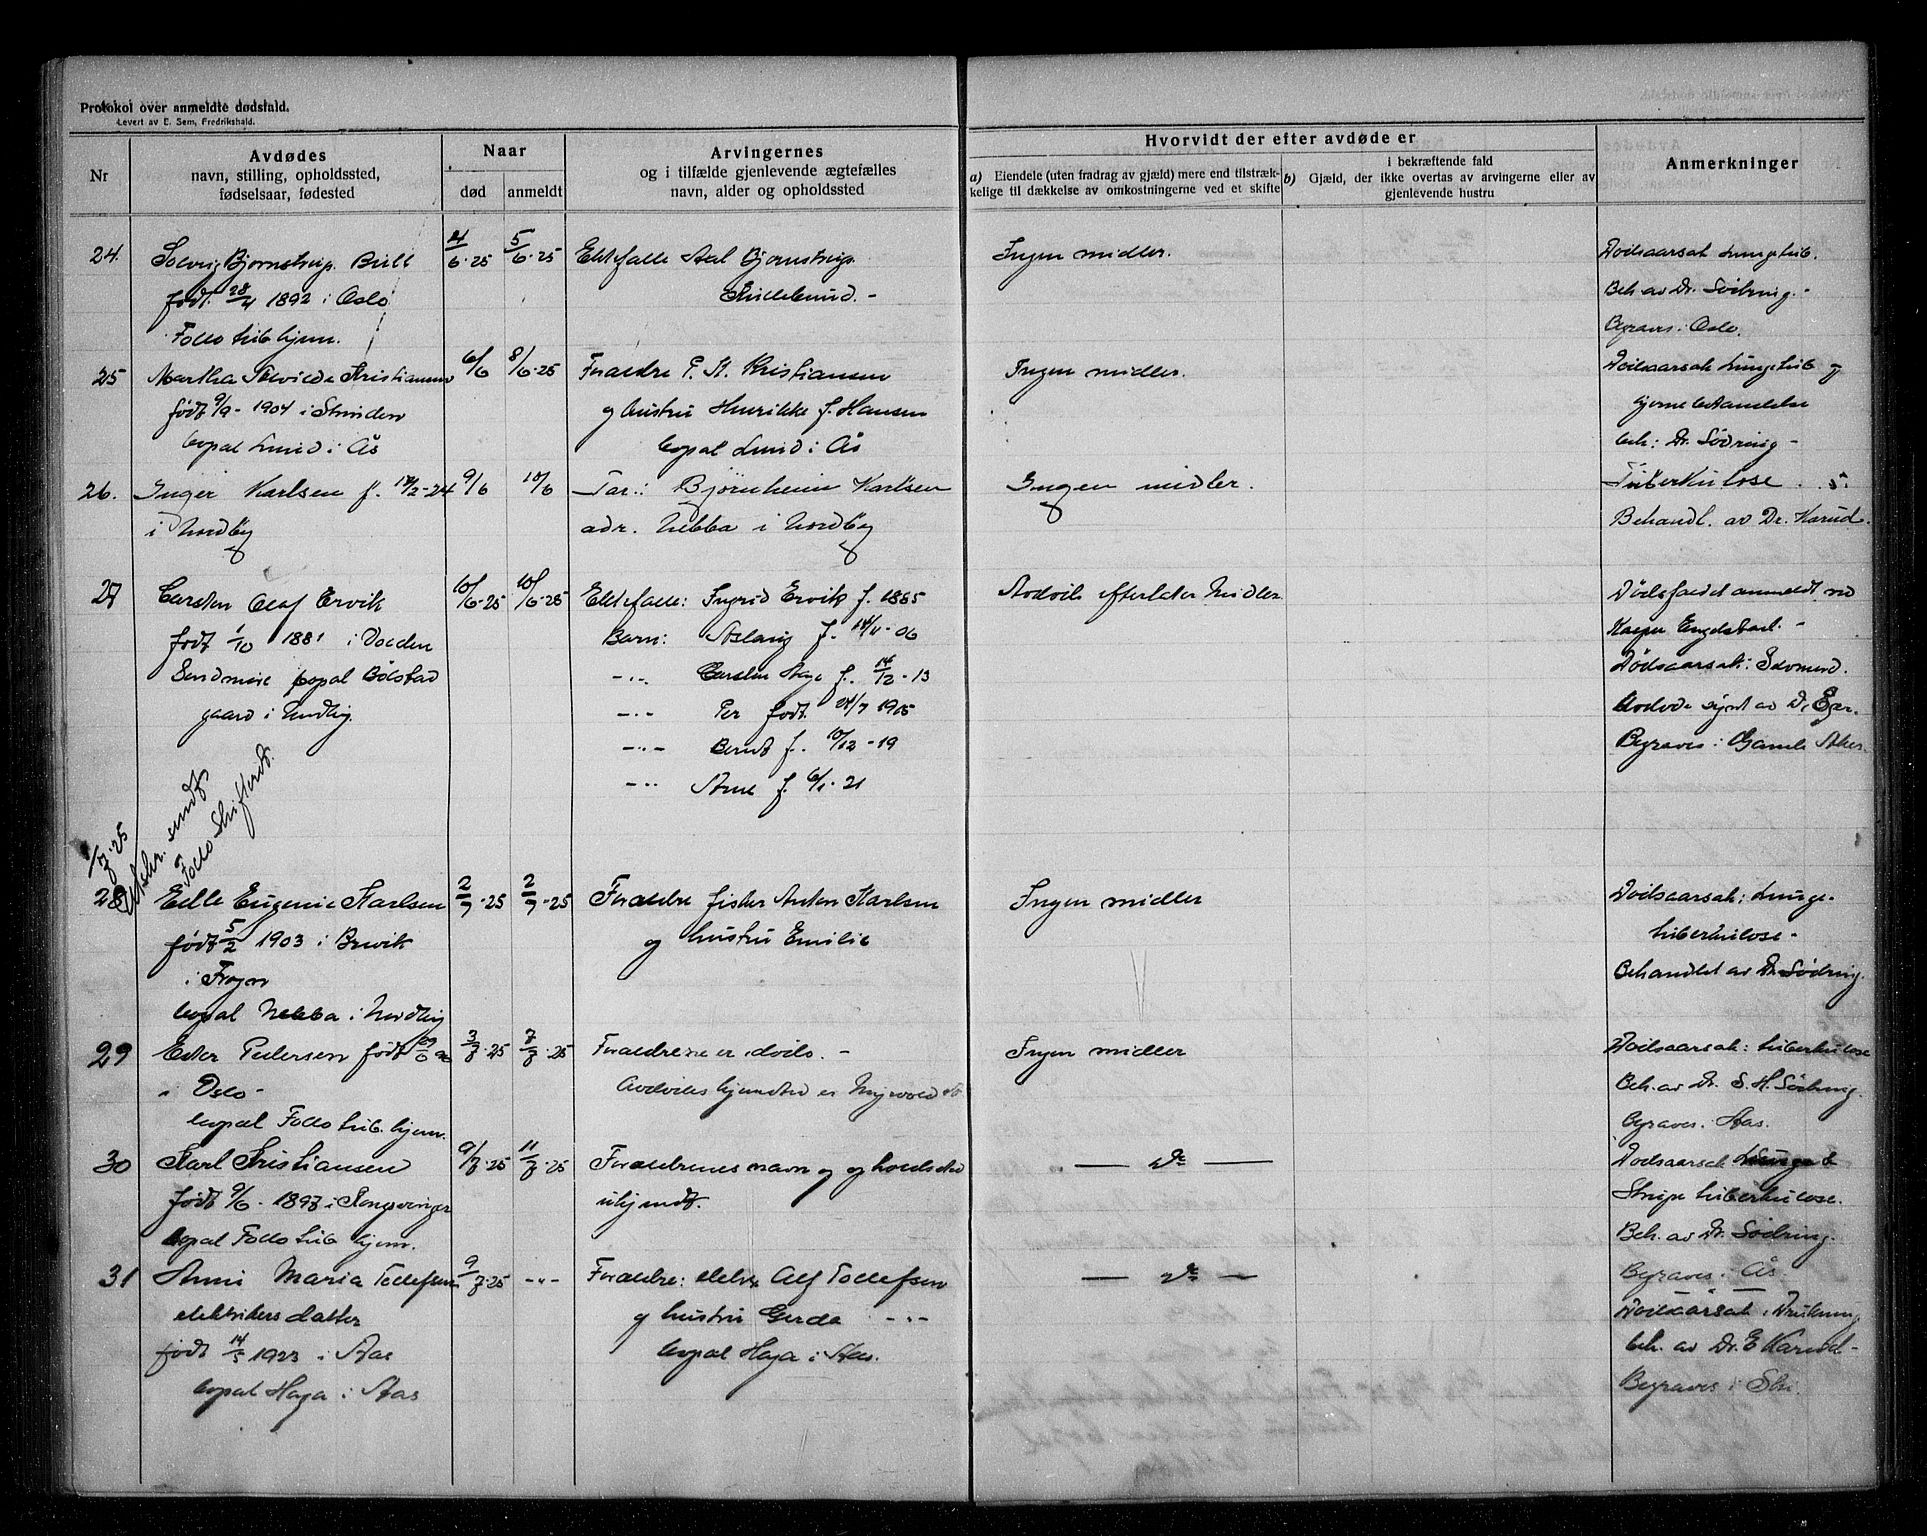 Protokol over anmeldte dødsfald.
Levert av E. Sem, Fredrikshald.
Nr
Avdødes
navn, stilling, opholdssted,
fødselsaar, fødested
Naar
død
anmeldt
Arvingernes
og i tilfælde gjenlevende ægtefælles
navn, alder og opholdssted
Hvorvidt der efter avdøde er
a) Eiendele (uten fradrag av gjæld) mere end tilstræk-
kelige til dækkelse av omkostningerne ved et skifte
i bekræftende fald
b) Gjæld, der ikke overtas av arvingerne eller av
gjenlevende hustru
Anmerkninger
24.
Solveig Bjørnstrup Bull
født 28/4 1892 i Oslo
Follo tub hjem.
4/6-25
5/6-25
Ektefælle Bjørnstrup
Ingen midler.
Dødsaarsak Lungetub.
Beh. av Dr. Södring.-
Begraves i Oslo.
25
Martha Kristiansen
født 9/9-1904 i
bopæl Lund i Ås
6/6
8/6-25
Foraldre Kristiansen
og hustru Henrikke f. Hansen
bopæl Lund i Ås
Ingen midler.
Dødsaarsak Lungetub og
beh: Dr. Södring-
26.
Inger Karlsen
i Nordby
9/6
10/6
Far: Björnheim Karlsen
adr. Nebba i Nordby
Ingen midler.
Tuberkulose.
Behandl. av Dr. Karud.
27
Carsten Olaf Ervik
født 1/10 1881 i Volden
Søndmøre bopæl Bölstad
gaard i Nordby.
10/6-25
10/6-25
Ektefælle: Ingrid Ervik f. 1885
Barn: Aslaug f. 14/11-06
-"- Carsten Aage f. 14/12-13
-"- Per født 24/7 1905
-"- Bernt f. 10/12-19
-"- Arne f. 6/1-21
Avdøde efterlater Midler
Dödsfaldet anmeldt ved
Kasper Engelstad.-
Dödsaarsak:
Avdøde synt av Dr. Eger.
Begraves i Gamle Aker.
1/7-25
Utskr. sendt
Follo Skifterett.
28
Elle Eugenie Karlsen
født 5/2 1903 i Brevik
i Frogn
bopæl Nebba i Nordby
2/7-25
2/7-25
Foraldre fisker Anton Karlsen
og hustru Emilie
Ingen midler
Dødsaarsak: Lunge-
tuberkulose-
Behandlet av Dr. Södring.
29
Ester Pedersen født
i Oslo-
bopæl Follo tub. hjem.
3/7-25
7/7-25
Foraldrene er døds.-
Avdødes hjemsted er
Ingen midler
Dødsaarsak: tuberkulose
Beh. av Dr. S. H. Södring.
Begraves i Aas.
30
Karl Kristiansen
født 9/6-1897 i Kongsvinger
bopæl Follo tub hjem.
9/7-25
11/7-25
Foraldrenes navn og opholdssted
ukjendt.
— Do —
Dødsaarsak
Strupe tuberkulose.
Beh. av Dr. Södring.
Begraves i Ås.
31
Anni Maria Tollefsen
elektrikers datter
født 14/5 1923 i Aas
bopæl Haga i Aas
9/7-25
-"-
Foraldre: elektr Alf Tollefsen
og hustru Gerda -"-
bopæl Haga i Aas.
— Do —
Dødsaarsak: Drukning
beh. av Dr. E Karud-
Begraves i Ski.